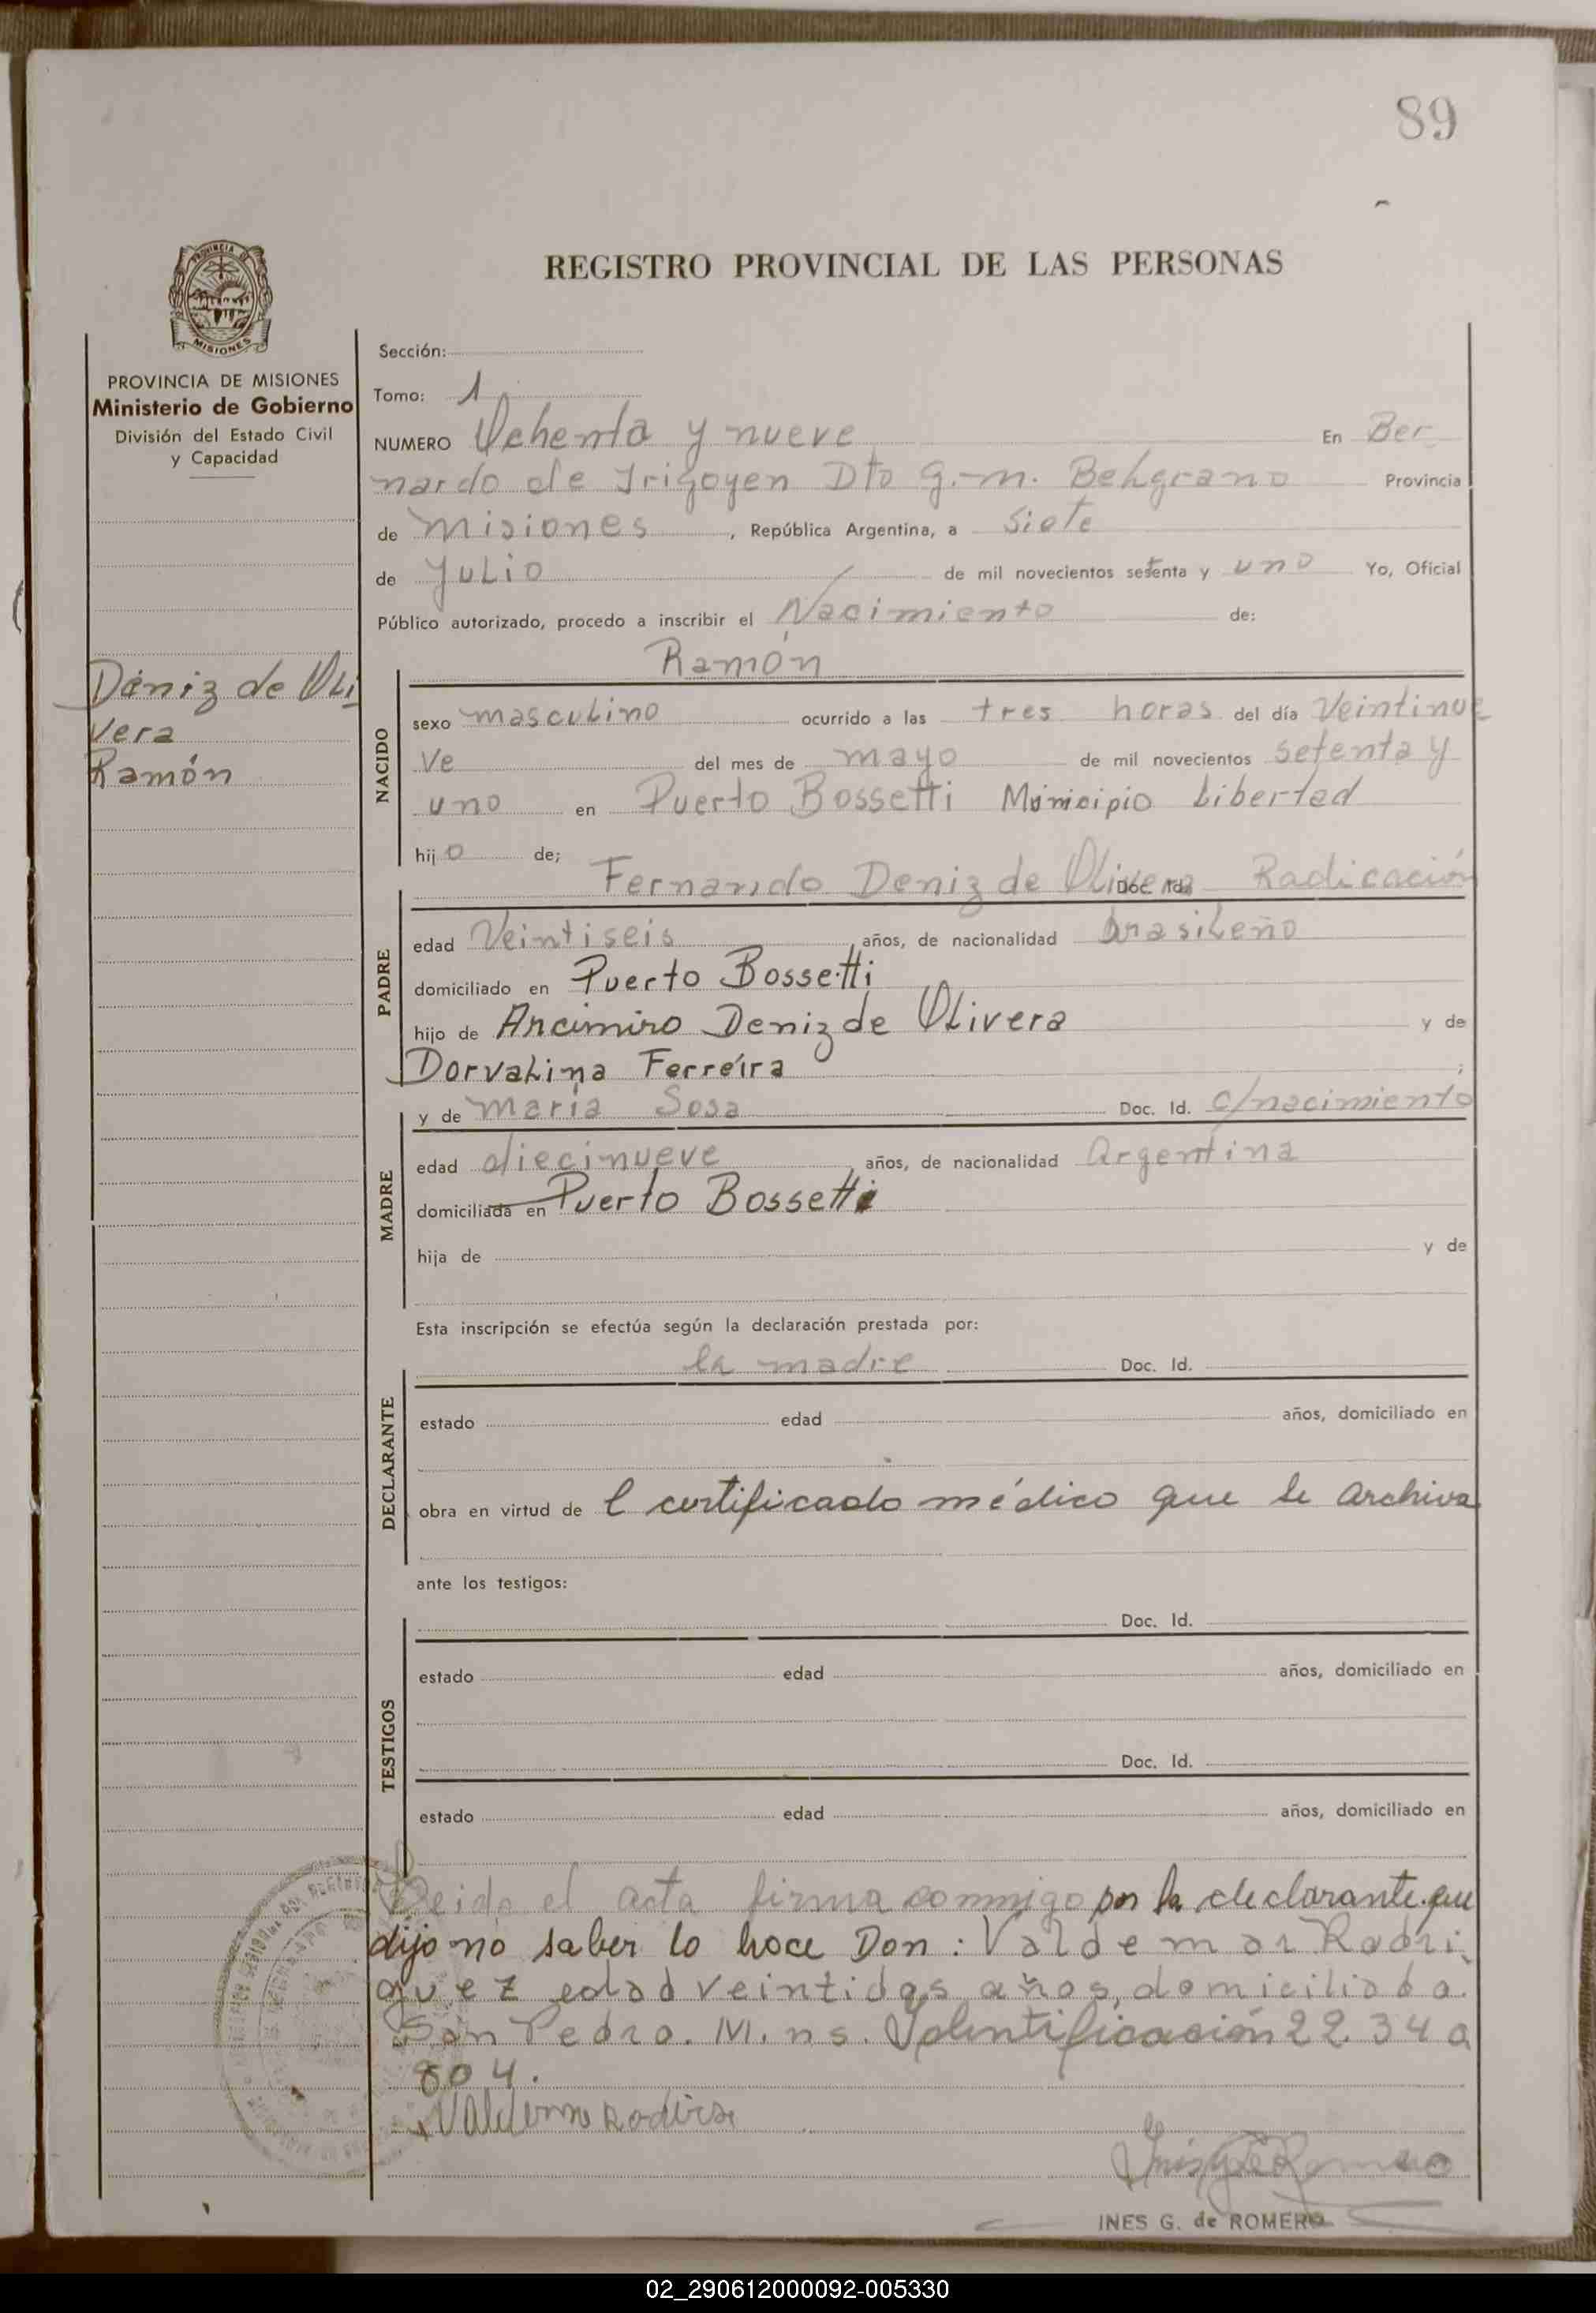 89
REGISTRO PROVINCIAL DE LAS PERSONAS
PROVINCIA DE MISIONES
Ministerio de Gobierno
División del Estado Civil
y Capacidad
Sección:
Tomo: 1
NUMERO Ochenta y nueve En Ber
nardo de Irigoyen Dto G.-m. Belgrano Provincia
de Misiones, República Argentina, a Siete
de Julio de mil novecientos setenta y uno Yo, Oficial
Público autorizado, procedo a inscribir el Nacimiento de:
Deniz de Oli
vera
Ramón
NACIDO
Ramón
sexo masculino ocurrido a las tres horas del día Veintinue
ve del mes de mayo de mil novecientos setenta y
uno en Puerto Bossetti Municipio Libertad
hijo de;
PADRE
Fernando Deniz de Olivera Doc. Id. Radicación
edad Veintiseis años, de nacionalidad brasileño
domiciliado en Puerto Bossetti
hijo de Ancimiro Deniz de Olivera y de
Dorvalina Ferreira ;
MADRE
y de maria Sosa Doc. Id. c/nacimiento
edad diecinueve años, de nacionalidad Argentina
domiciliada en Puerto Bossetti
hija de y de
Esta inscripción se efectúa según la declaración prestada por:
DECLARANTE
la madre Doc. Id.
estado edad años, domiciliado en
obra en virtud de l certificado médico que se archiva
ante los testigos:
TESTIGOS
Doc. Id.
estado edad años, domiciliado en
Doc. Id.
estado edad años, domiciliado en
Leida el acta firma conmigo por la declarante que
dijo no saber lo hace Don: Valdemar Rodri
guez edad veintidos años, domiciliado
San Pedro. M.ns. Identificación 22.340
804.
INES G. de ROMERO
02_290612000092-005330